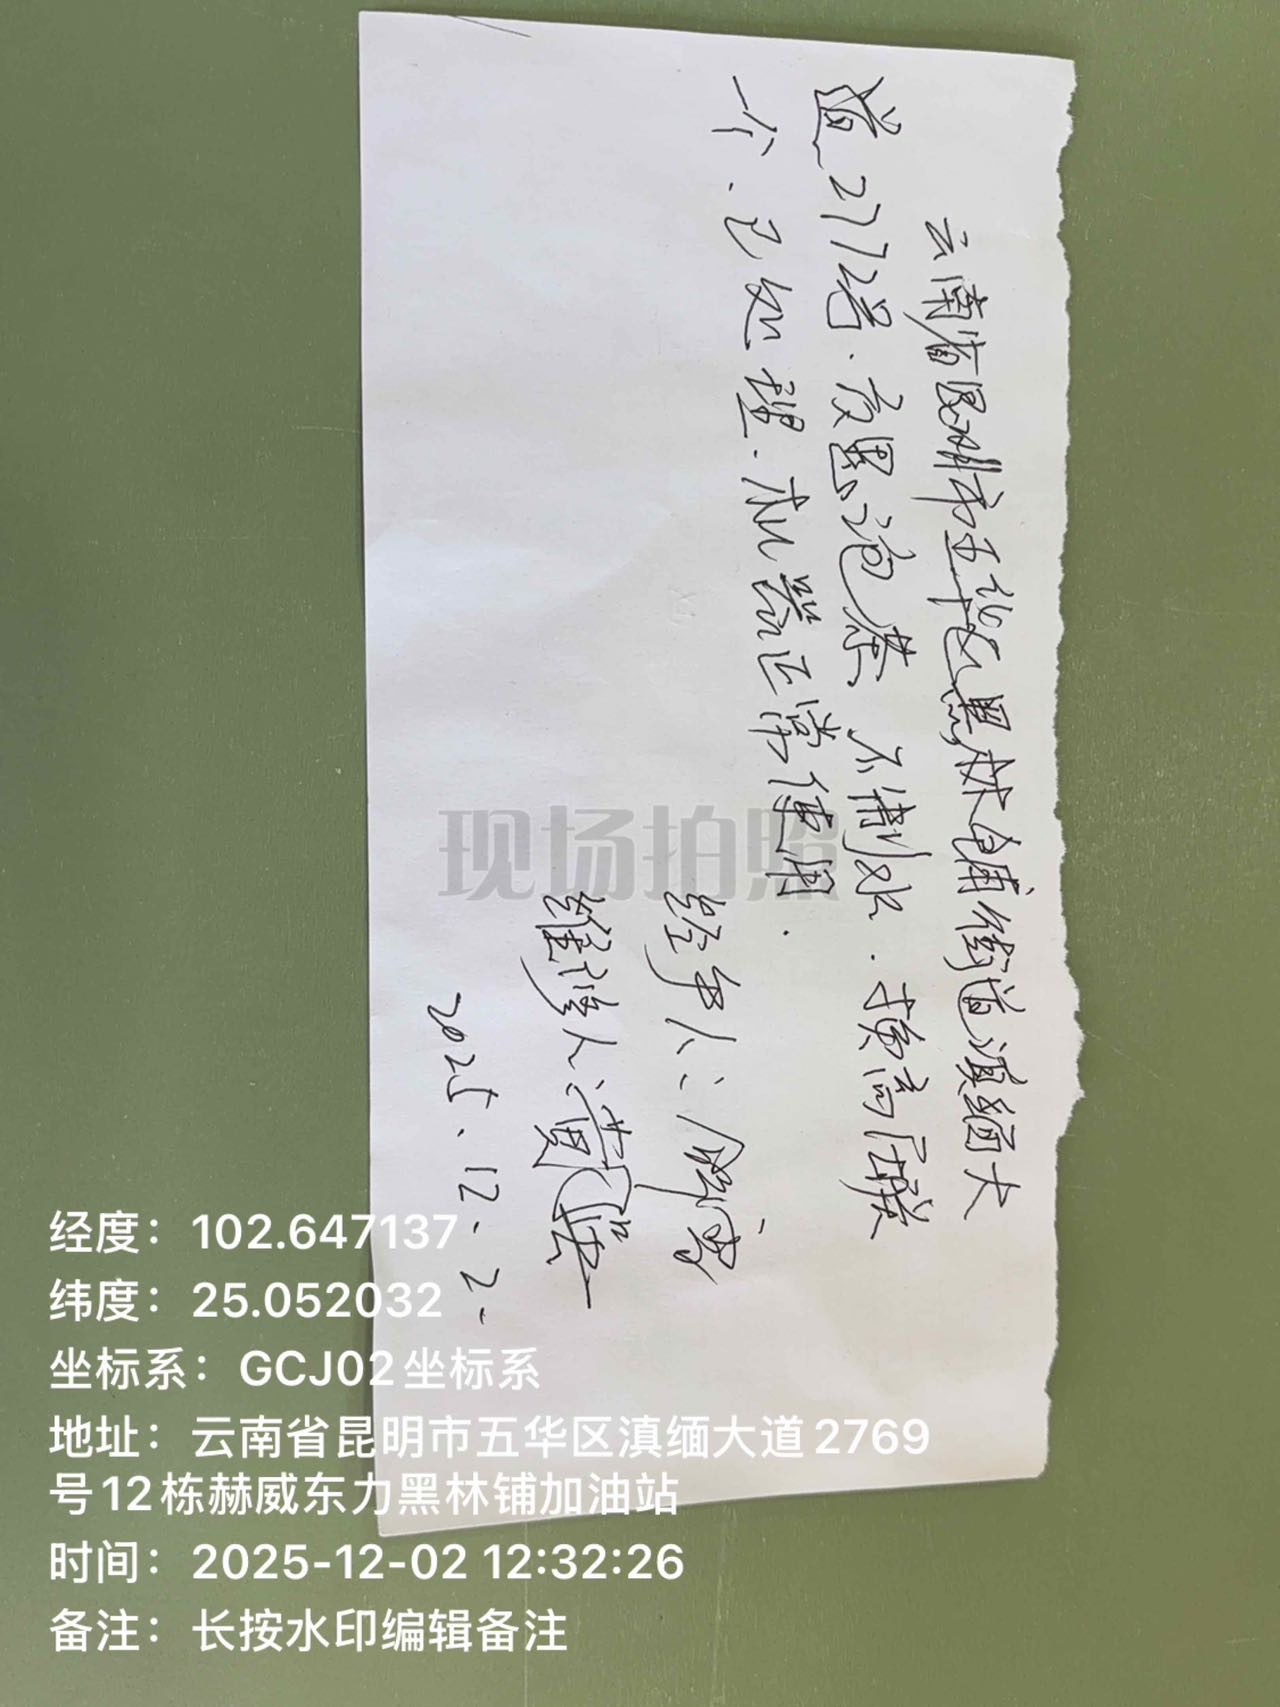 云南省昆明市五华区黑林铺街道滇缅大
道2772号.页思泡茶 不制水.换高压膜
一个.已处理.机器正常使用.
经手人:解
维修人:黄
2025.12.2.
现场拍照
经度：102.647137
纬度：25.052032
坐标系：GCJ02坐标系
地址：云南省昆明市五华区滇缅大道2769
号12栋赫威东力黑林铺加油站
时间：2025-12-02 12:32:26
备注：长按水印编辑备注